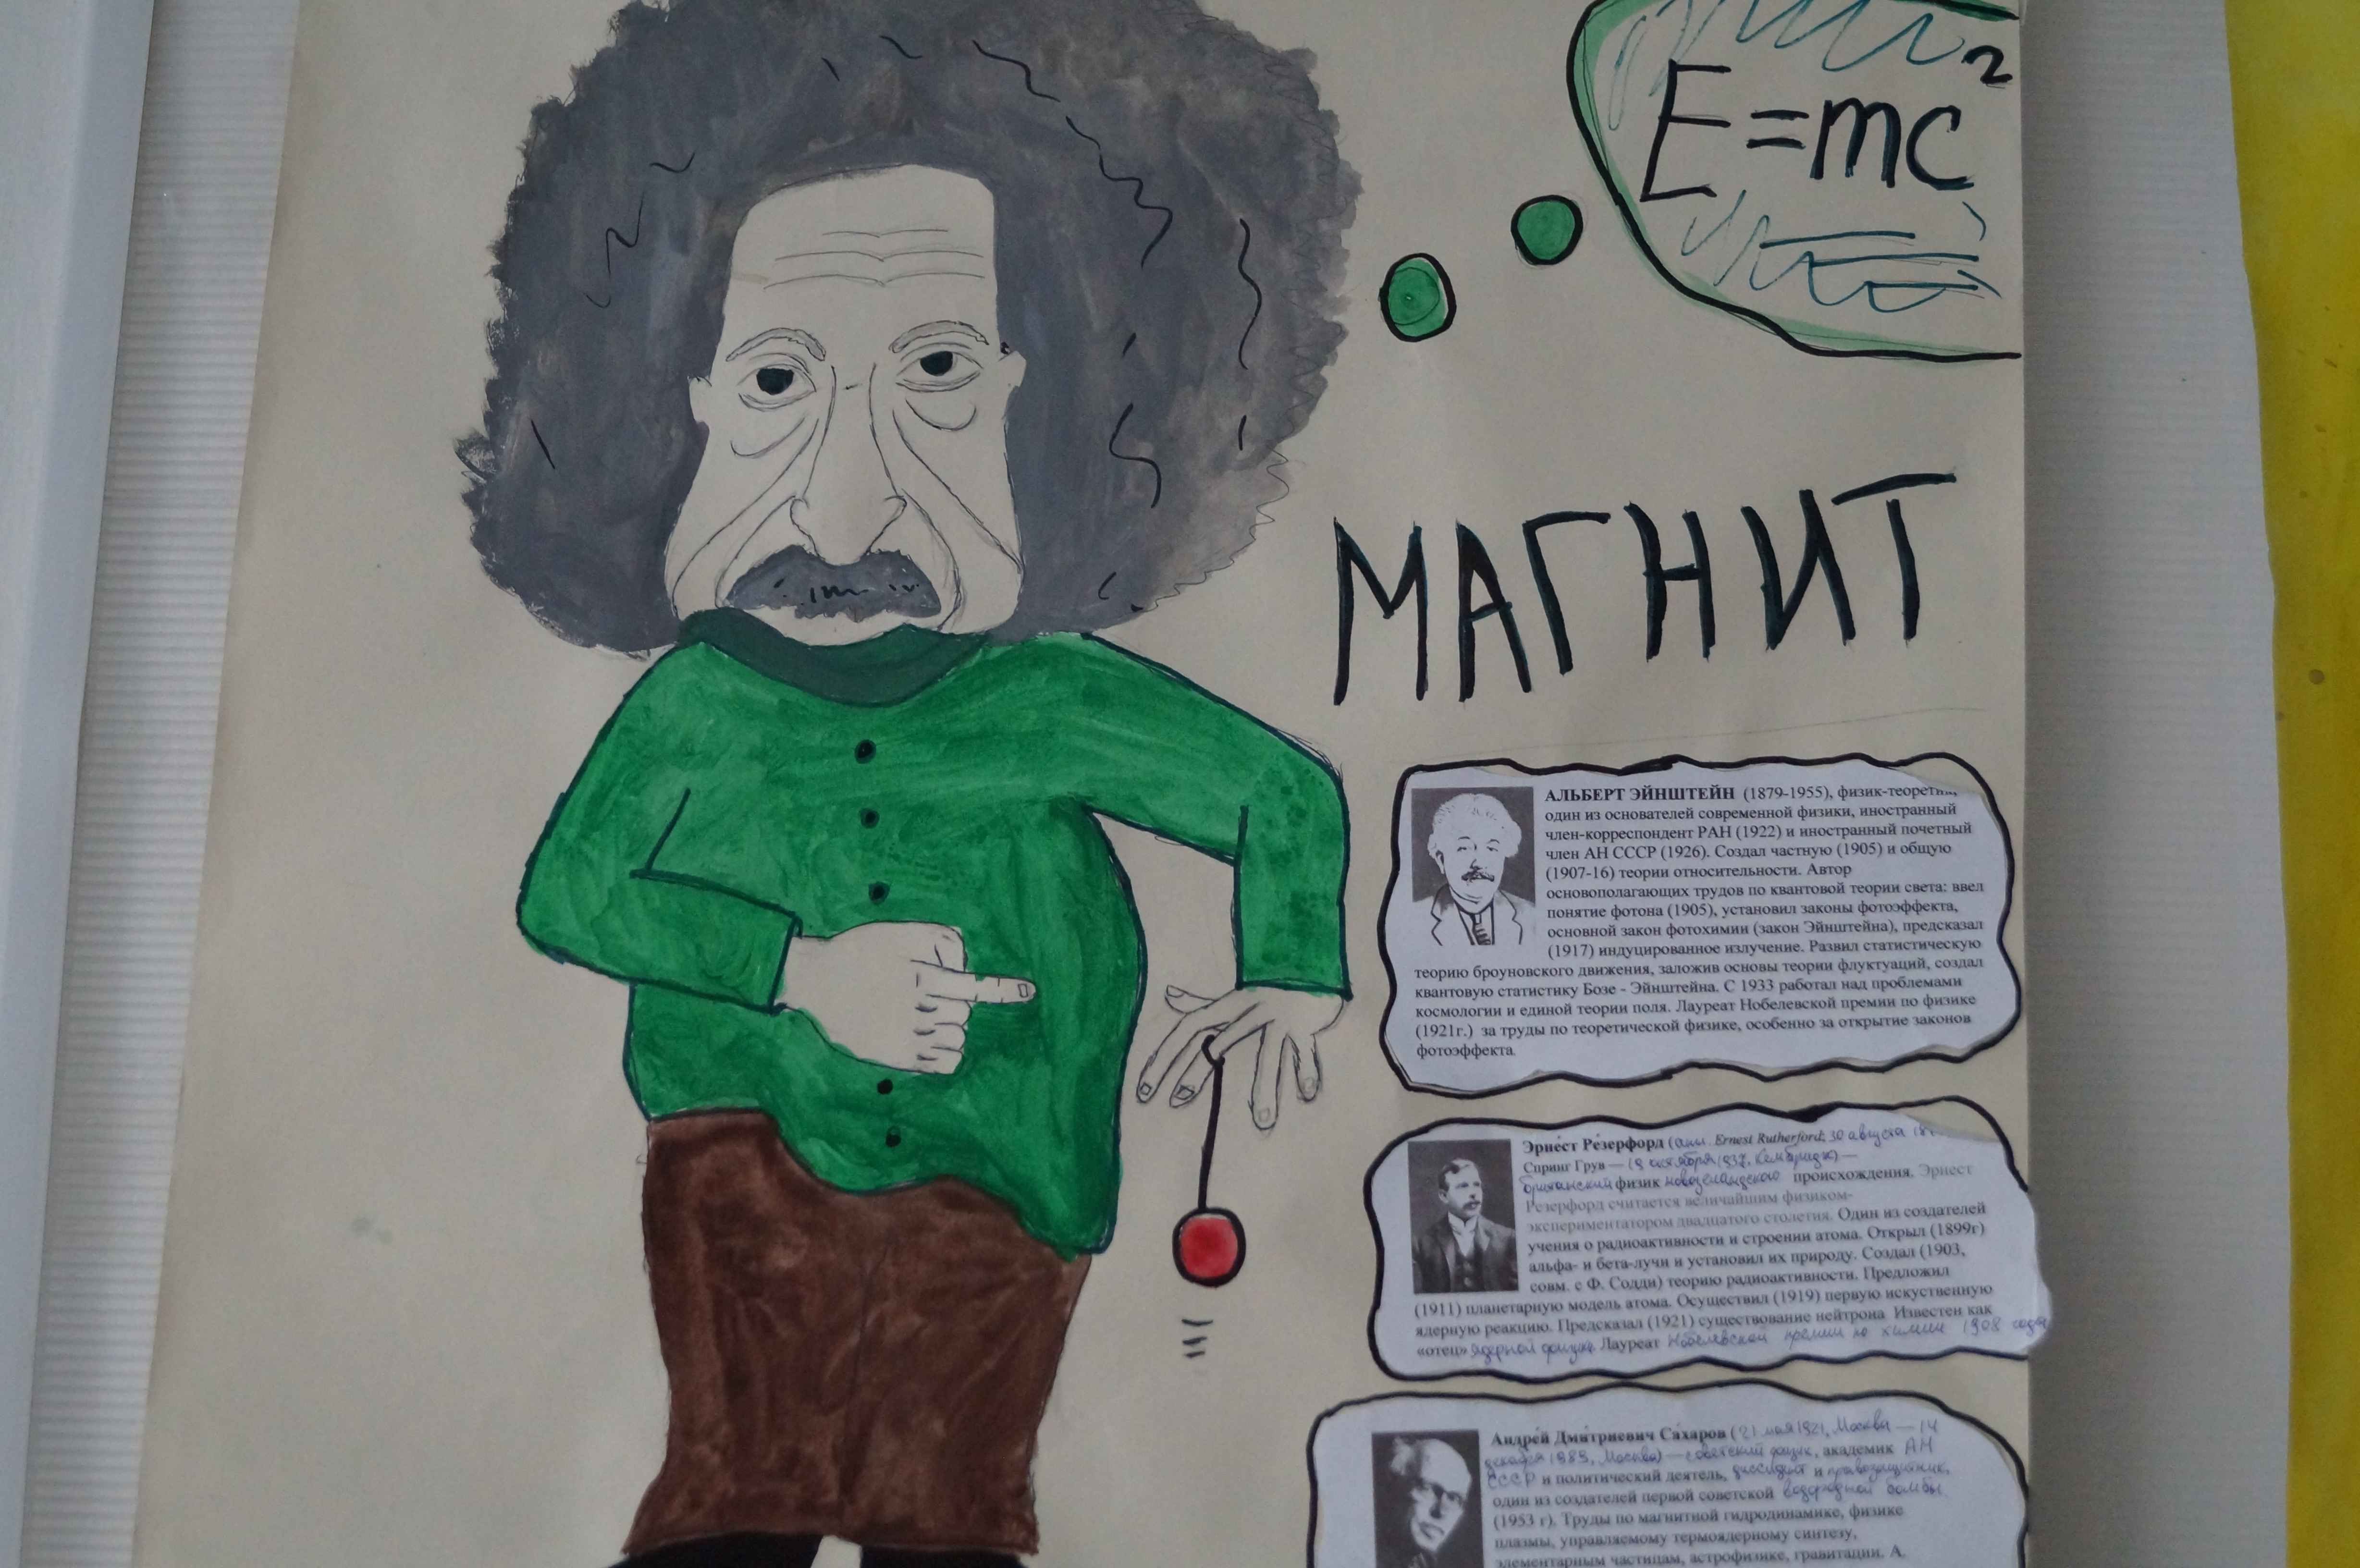 E=mc²
МАГНИТ
АЛЬБЕРТ ЭЙНШТЕЙН (1879-1955), физик-теоретик,
один из основателей современной физики, иностранный
член-корреспондент РАН (1922) и иностранный почетный
член АН СССР (1926). Создал частную (1905) и общую
(1907-16) теории относительности. Автор
основополагающих трудов по квантовой теории света: ввел
понятие фотона (1905), установил законы фотоэффекта,
основной закон фотохимии (закон Эйнштейна), предсказал
(1917) индуцированное излучение. Развил статистическую
теорию броуновского движения, заложив основы теории флуктуаций, создал
квантовую статистику Бозе - Эйнштейна. С 1933 работал над проблемами
космологии и единой теории поля. Лауреат Нобелевской премии по физике
(1921г.) за труды по теоретической физике, особенно за открытие законов
фотоэффекта.
Эрне́ст Ре́зерфорд (англ. Ernest Rutherford; 30 августа
Спринг Грув — 19 октября 1937, Кембридж) —
британский физик новозеландского происхождения. Эрнест
Резерфорд считается величайшим физиком-
экспериментатором двадцатого столетия. Один из создателей
учения о радиоактивности и строении атома. Открыл (1899г)
альфа- и бета-лучи и установил их природу. Создал (1903,
совм. с Ф. Содди) теорию радиоактивности. Предложил
(1911) планетарную модель атома. Осуществил (1919) первую искуственную
ядерную реакцию. Предсказал (1921) существование нейтрона Известен как
«отец» ядерной физики. Лауреат Нобелевской премии по химии 1908 года
Андре́й Дми́триевич Са́харов (21 мая 1921, Москва — 14
декабря 1989, Москва) — советский физик, академик АН
СССР и политический деятель, диссидент и правозащитник,
один из создателей первой советской водородной бомбы
(1953 г). Труды по магнитной гидродинамике, физике
плазмы, управляемому термоядерному синтезу,
элементарным частицам, астрофизике, гравитации. А.